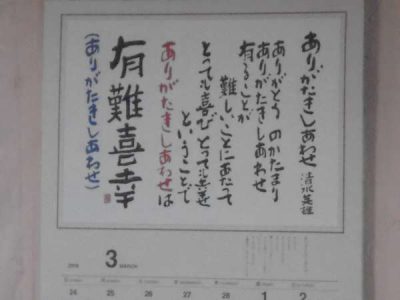 ありがたきしあわせ 清水英雄
ありがとう のかたまり
ありがたきしあわせ
有ることが
難しいことにあたって
とっても喜び とっても幸せ
ということで
ありがたきしあわせは
有難喜幸
(ありがたきしあわせ)
3 MARCH
24 25 26 27 28 1 2